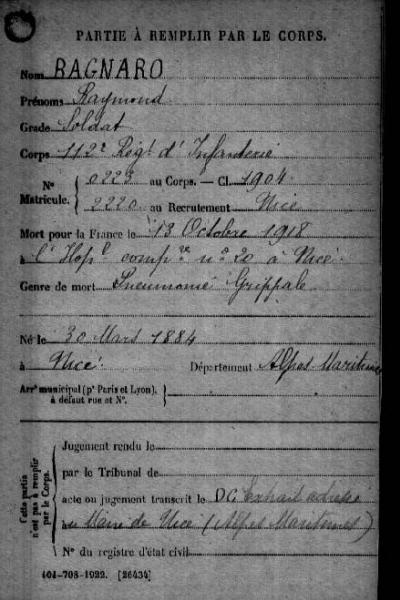 PARTIE À REMPLIR PAR LE CORPS.
Nom BAGNARO
Prénoms Raymond
Grade Soldat
Corps 112e Régt d'Infanterie
N° Matricule. 0223 au Corps. — Cl. 1904
2220 au Recrutement Nice
Mort pour la France le 13 Octobre 1918
à l'Hopl compre n° 20 à Nice
Genre de mort Pneumonie Grippale
Né le 30 Mars 1884
à Nice Département Alpes Maritimes
Arrt municipal (pr Paris et Lyon),
à défaut rue et N°.
Cette partie n'est pas à remplir par le Corps.
Jugement rendu le
par le Tribunal de
acte ou jugement transcrit le D.C. Extrait adressé
au Maire de Nice (Alpes Maritimes)
N° du registre d'état civil
101-708-1922. [26434]